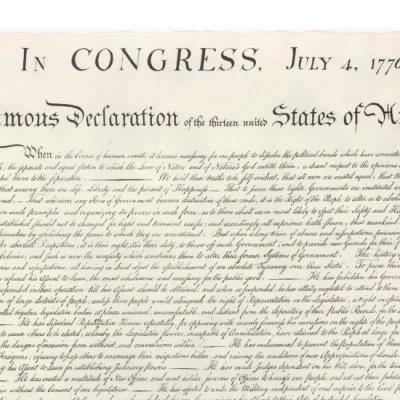 IN CONGRESS, JULY 4, 1776
Declaration of the thirteen united States of
When in the Course of human events, it becomes necessary for one people to dissolve the political bands which have
the separate and equal station to which the Laws of Nature and of Nature's God entitle them, a decent respect to the opinions
them to the separation. We hold these truths to be self-evident, that all men are created equal, that
that among these are Life, Liberty and the pursuit of Happiness. — That to secure these rights, Governments are instituted
— That whenever any Form of Government becomes destructive of these ends, it is the Right of the People to alter or to
on such principles and organizing its powers in such form, as to them shall seem most likely to effect their Safety and
established should not be changed for light and transient causes; and accordingly all experience hath shewn, that mankind
by abolishing the forms to which they are accustomed. But when a long train of abuses and usurpations,
absolute Despotism, it is their right, it is their duty, to throw off such Government, and to provide new Guards for their
Colonies; and such is now the necessity which constrains them to alter their former Systems of Government. The history
and usurpations, all having in direct object the establishment of an absolute Tyranny over these States. To prove
his Assent to Laws, the most wholesome and necessary for the public good. He has forbidden his
suspended in their operation till his Assent should be obtained; and when so suspended, he has utterly neglected to attend to them.
of large districts of people, unless those people would relinquish the right of Representation in the Legislature, a right
called together legislative bodies at places unusual, uncomfortable, and distant from the depository of their public Records,
He has dissolved Representative Houses repeatedly, for opposing with manly firmness his invasions on the rights of the
to cause others to be elected; whereby the Legislative powers, incapable of Annihilation, have returned to the People at large
the dangers of invasion from without, and convulsions within. He has endeavoured to prevent the population of these
refusing to pass others to encourage their migrations hither, and raising the conditions of new Appropriations of Lands.
his Assent to Laws for establishing Judiciary powers. He has made Judges dependent on his Will alone, for the
He has erected a multitude of New Offices, and sent hither swarms of Officers to harrass our people, and eat out their
without the Consent of our legislatures. He has affected to render the Military independent of and superior to the Civil